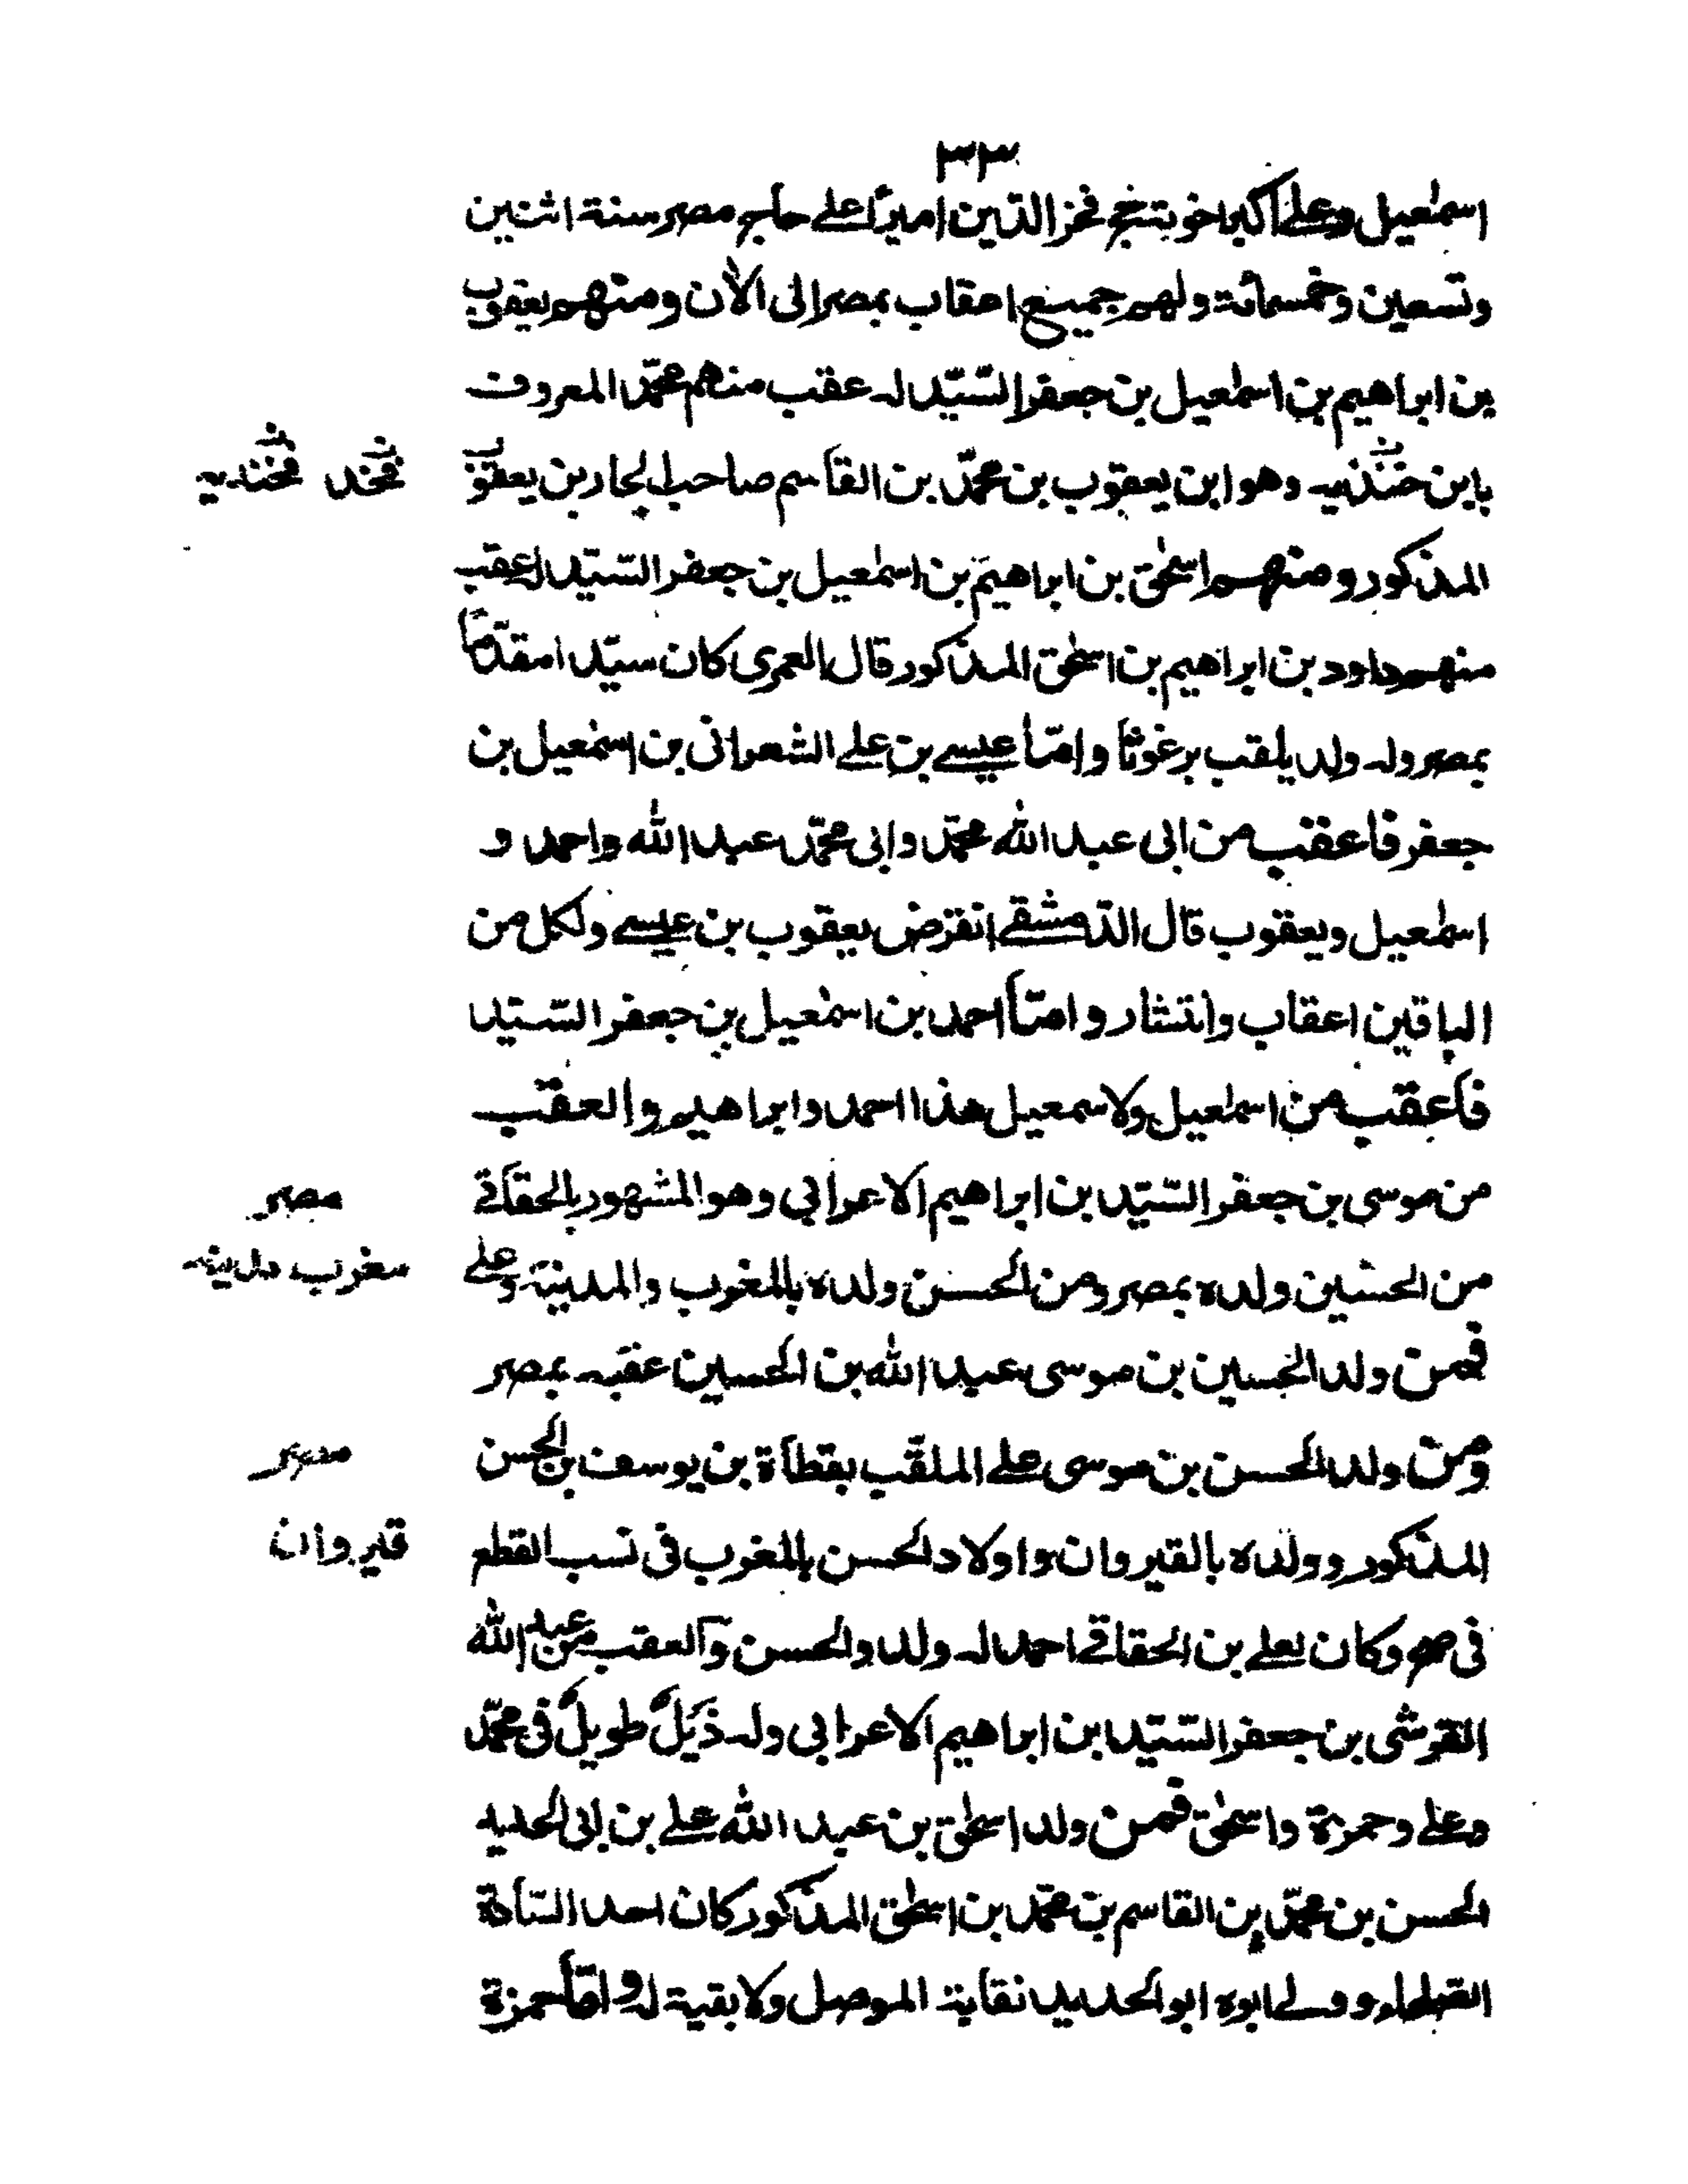 ٣٣
اسمعيل وعلى اكبر اخوته حج فخر الدين اميرًا على حاج مصر سنة اثنين
وتسعين وخمسمائة ولهم جميع اعقاب بمصر الى الآن ومنهم يعقوب
بن ابراهيم بن اسمعيل بن جعفر السّيّد له عقب منهم محمّد المعروف
بابن وهو ابن يعقوب بن محمّد بن القاسم صاحب الجار بن يعقوب
المذكور ومنهم اسحٰق بن ابراهيم بن اسمعيل بن جعفر السّيّد اعقب
منهم داود بن ابراهيم بن اسحٰق المذكور قال العمرى كان سيّدا مقدّمًا
بمصر وله ولد يلقب برغوثا وامّا عيسے بن علے الشعرانى بن اسمعيل بن
جعفر فاعقب من ابى عبد الله محمّد وابى محمّد عبد الله واحمد و
اسمعيل ويعقوب قال الدّمشقے انقرض يعقوب بن عيسے ولكل من
الباقين اعقاب وانتشار وامّا احمد بن اسمعيل بن جعفر السّيّد
فاعقب من اسمعيل ولاسمعيل هذا احمد وابراهيم والعقب
من موسى بن جعفر السّيّد بن ابراهيم الاعرابي وهو المشهور بالحقاقے
مصر
من الحسين ولده بمصر ومن الحسن ولده بالمغرب والمدينة وعلے
مغرب مدينه
فمن ولد الحسين بن موسى عبد الله بن الحسين عقبه بمصر
ومن ولد الحسن بن موسى علے الملقّب بقطاة بن يوسف بن الحسن
مصر
المذكور وولده بالقيروان واولاد الحسن بالمغرب فى نسب القطع
قيروان
فى صح وكان لعلے بن الحقاقے احمد له ولد والحسن والعقب من عبد الله
القرشى بن جعفر السّيّد ابن ابراهيم الاعرابي وله ذَيلٌ طويلٌ فى محمّد
وعلے وحمزة واسحٰق فمن ولد اسحٰق بن عبد الله علے بن ابى الحديد
الحسن بن محمّد بن القاسم بن محمّد بن اسحٰق المذكور كان احد السّادة
وولے ابوه ابو الحديد نقابة الموصل ولا بقية له وامّا حمزة